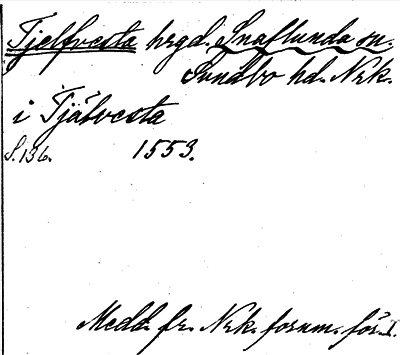 Tjelfvesta hrgd. Snaflunda sn.
Sundbo hd. Nrk.
i Tjälvesta
S. 136. 1553.
Medd. fr. Nrk. fornm. för. I.